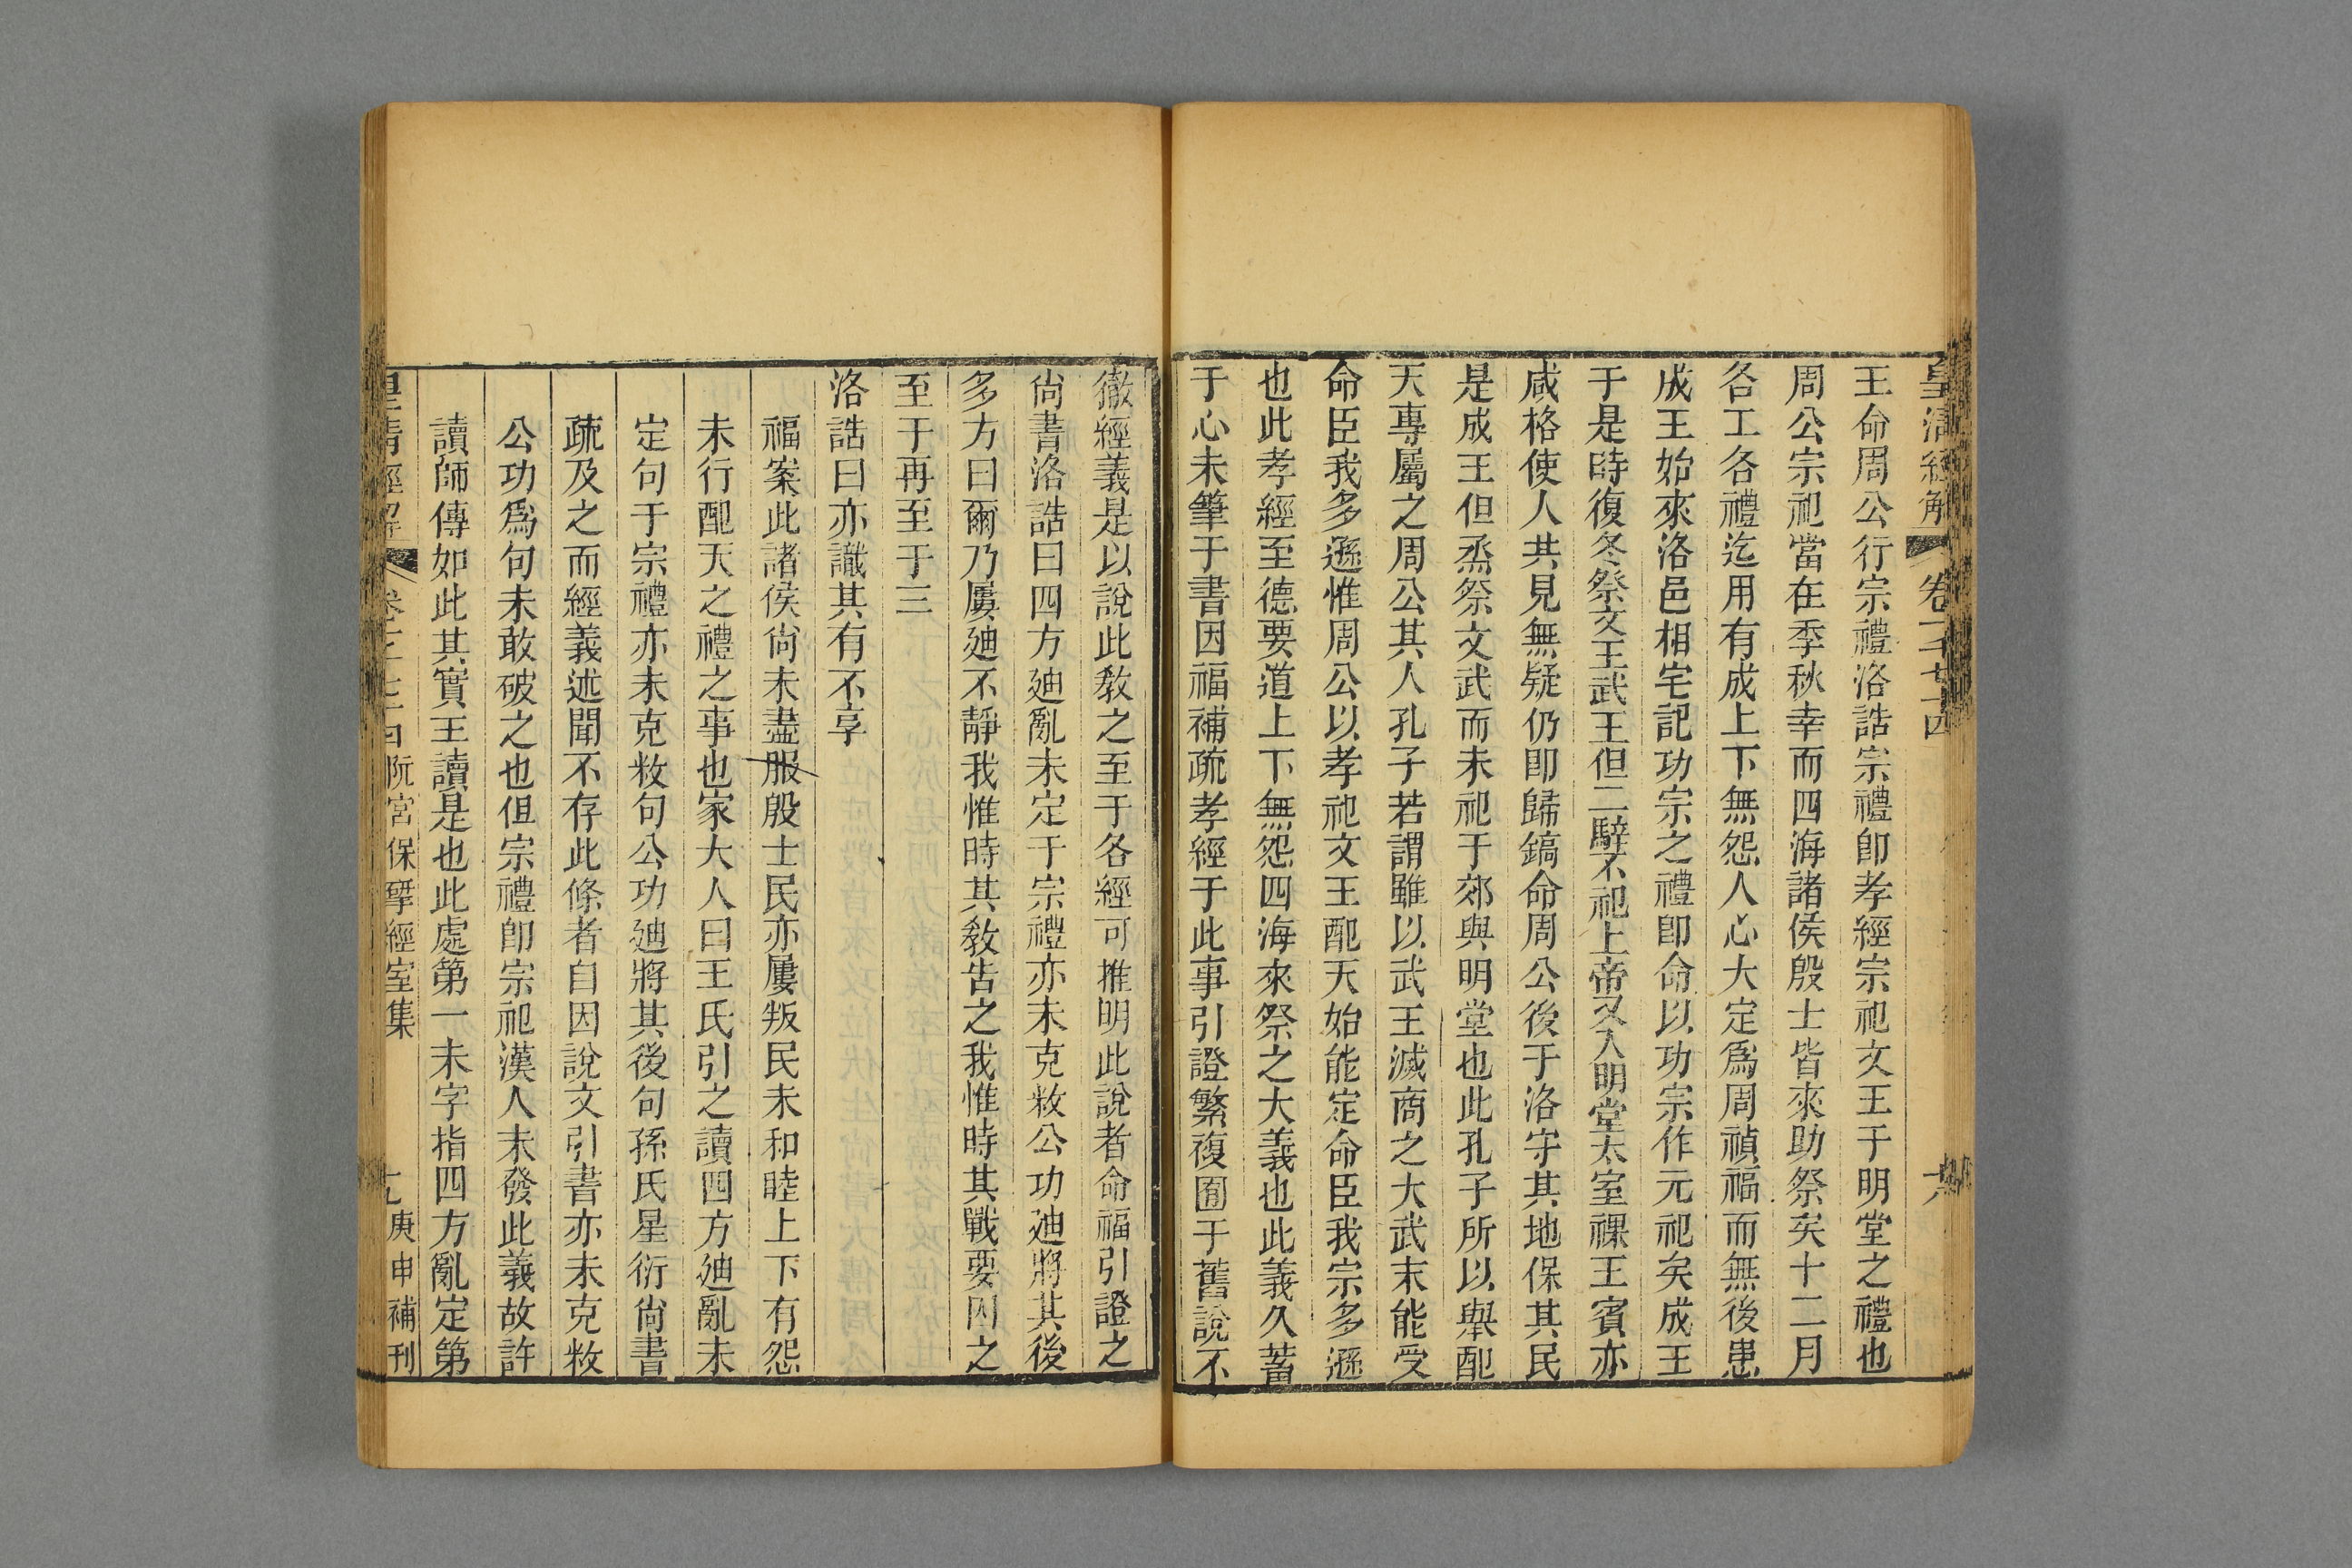 皇清經解 卷一千七十四 六
王命周公行宗禮洛誥宗禮卽孝經宗祀文王于明堂之禮也
周公宗祀當在季秋幸而四海諸侯殷士皆來助祭矣十二月
各工各禮迄用有成上下無怨人心大定爲周禎福而無後患
成王始來洛邑相宅記功宗之禮卽命以功宗作元祀矣成王
于是時復冬祭文王武王但二騂不祀上帝又入明堂太室祼王賓亦
咸格使人共見無疑仍卽歸鎬命周公後于洛守其地保其民
是成王但烝祭文武而未祀于郊與明堂也此孔子所以舉配
天專屬之周公其人孔子若謂雖以武王滅商之大武未能受
命臣我多遜惟周公以孝祀文王配天始能定命臣我宗多遜
也此孝經至德要道上下無怨四海來祭之大義也此義久蓄
于心未筆于書因福補疏孝經于此事引證繁複囿于舊說不
徹經義是以說此敎之至于各經可推明此說者命福引證之
尙書洛誥曰四方迪亂未定于宗禮亦未克敉公功迪將其後
多方曰爾乃屢迪不靜我惟時其敎告之我惟時其戰要囚之
至于再至于三
洛誥曰亦識其有不享
福案此諸侯尙未盡服殷士民亦屢叛民未和睦上下有怨
未行配天之禮之事也家大人曰王氏引之讀四方迪亂未
定句于宗禮亦未克敉句公功迪將其後句孫氏星衍尙書
疏及之而經義述聞不存此條者自因說文引書亦未克敉
公功爲句未敢破之也但宗禮卽宗祀漢人未發此義故許
讀師傳如此其實王讀是也此處第一未字指四方亂定第
皇清經解 阮宮保揅經室集 庚申補刊